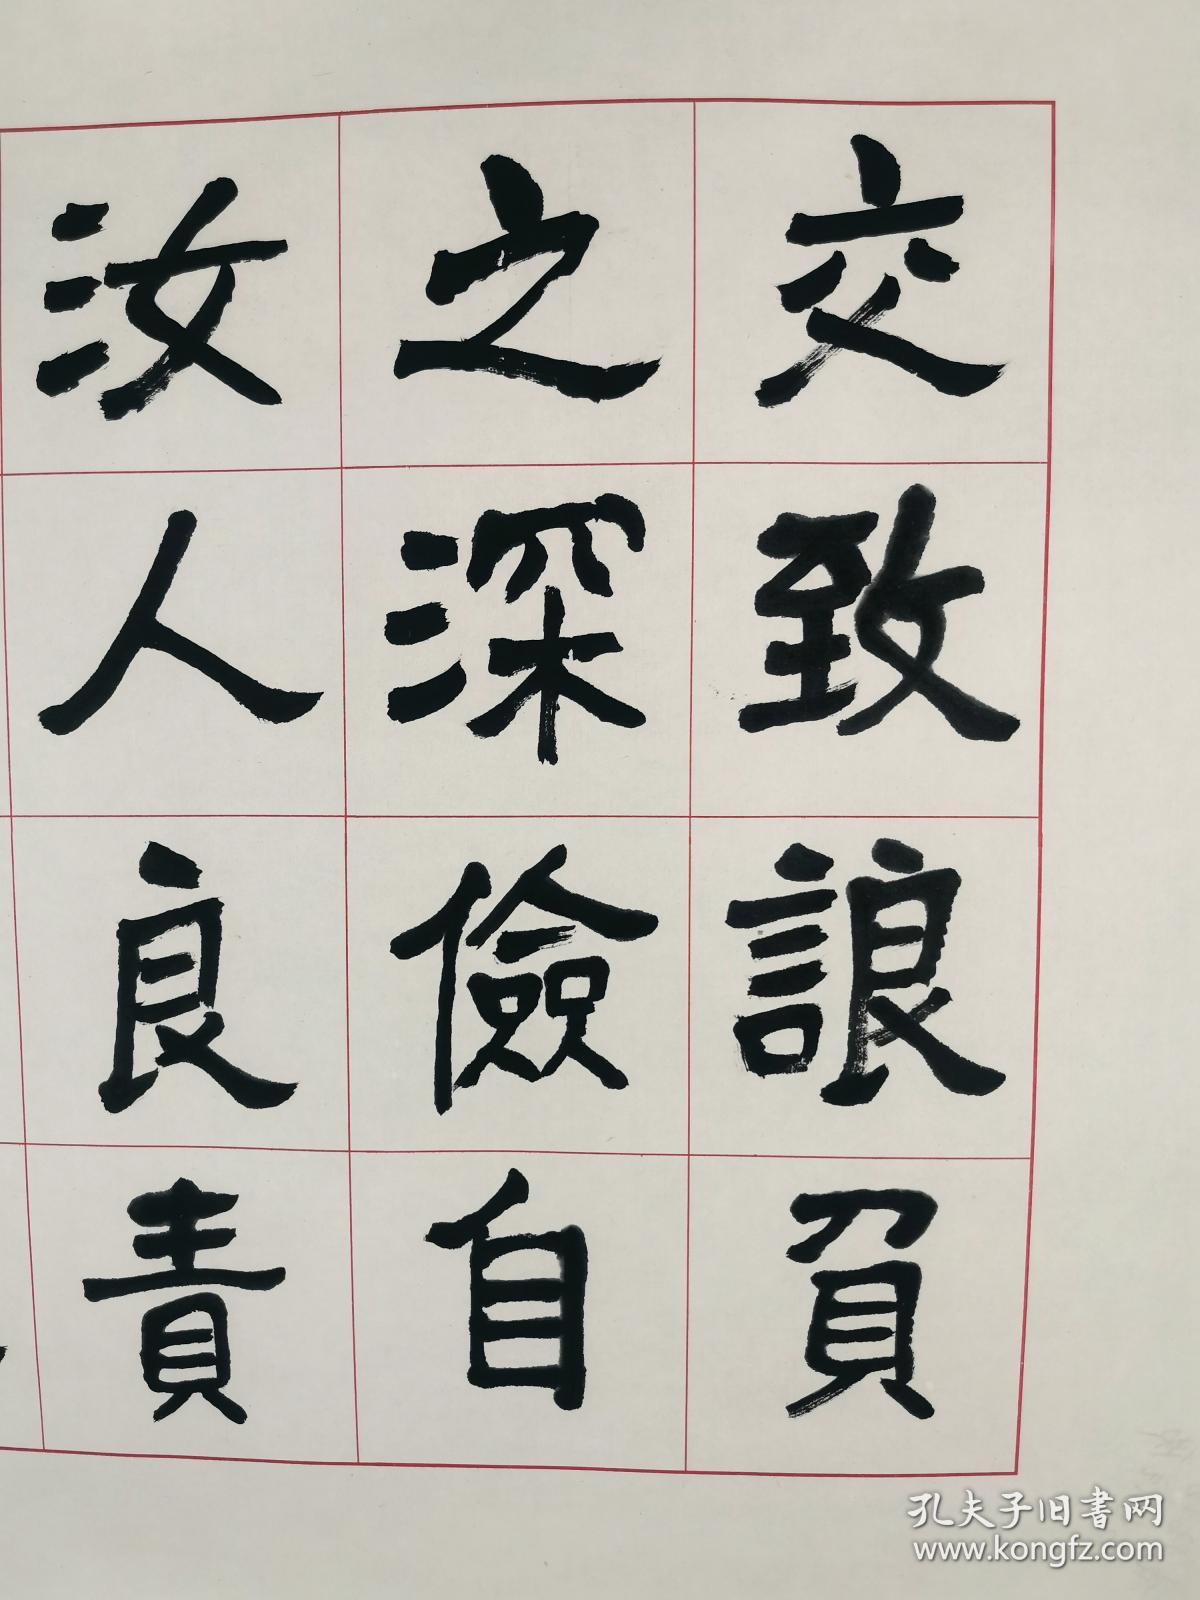 交致誏負
之深儉自
汝人良責
孔夫子旧書网
www.kongfz.com